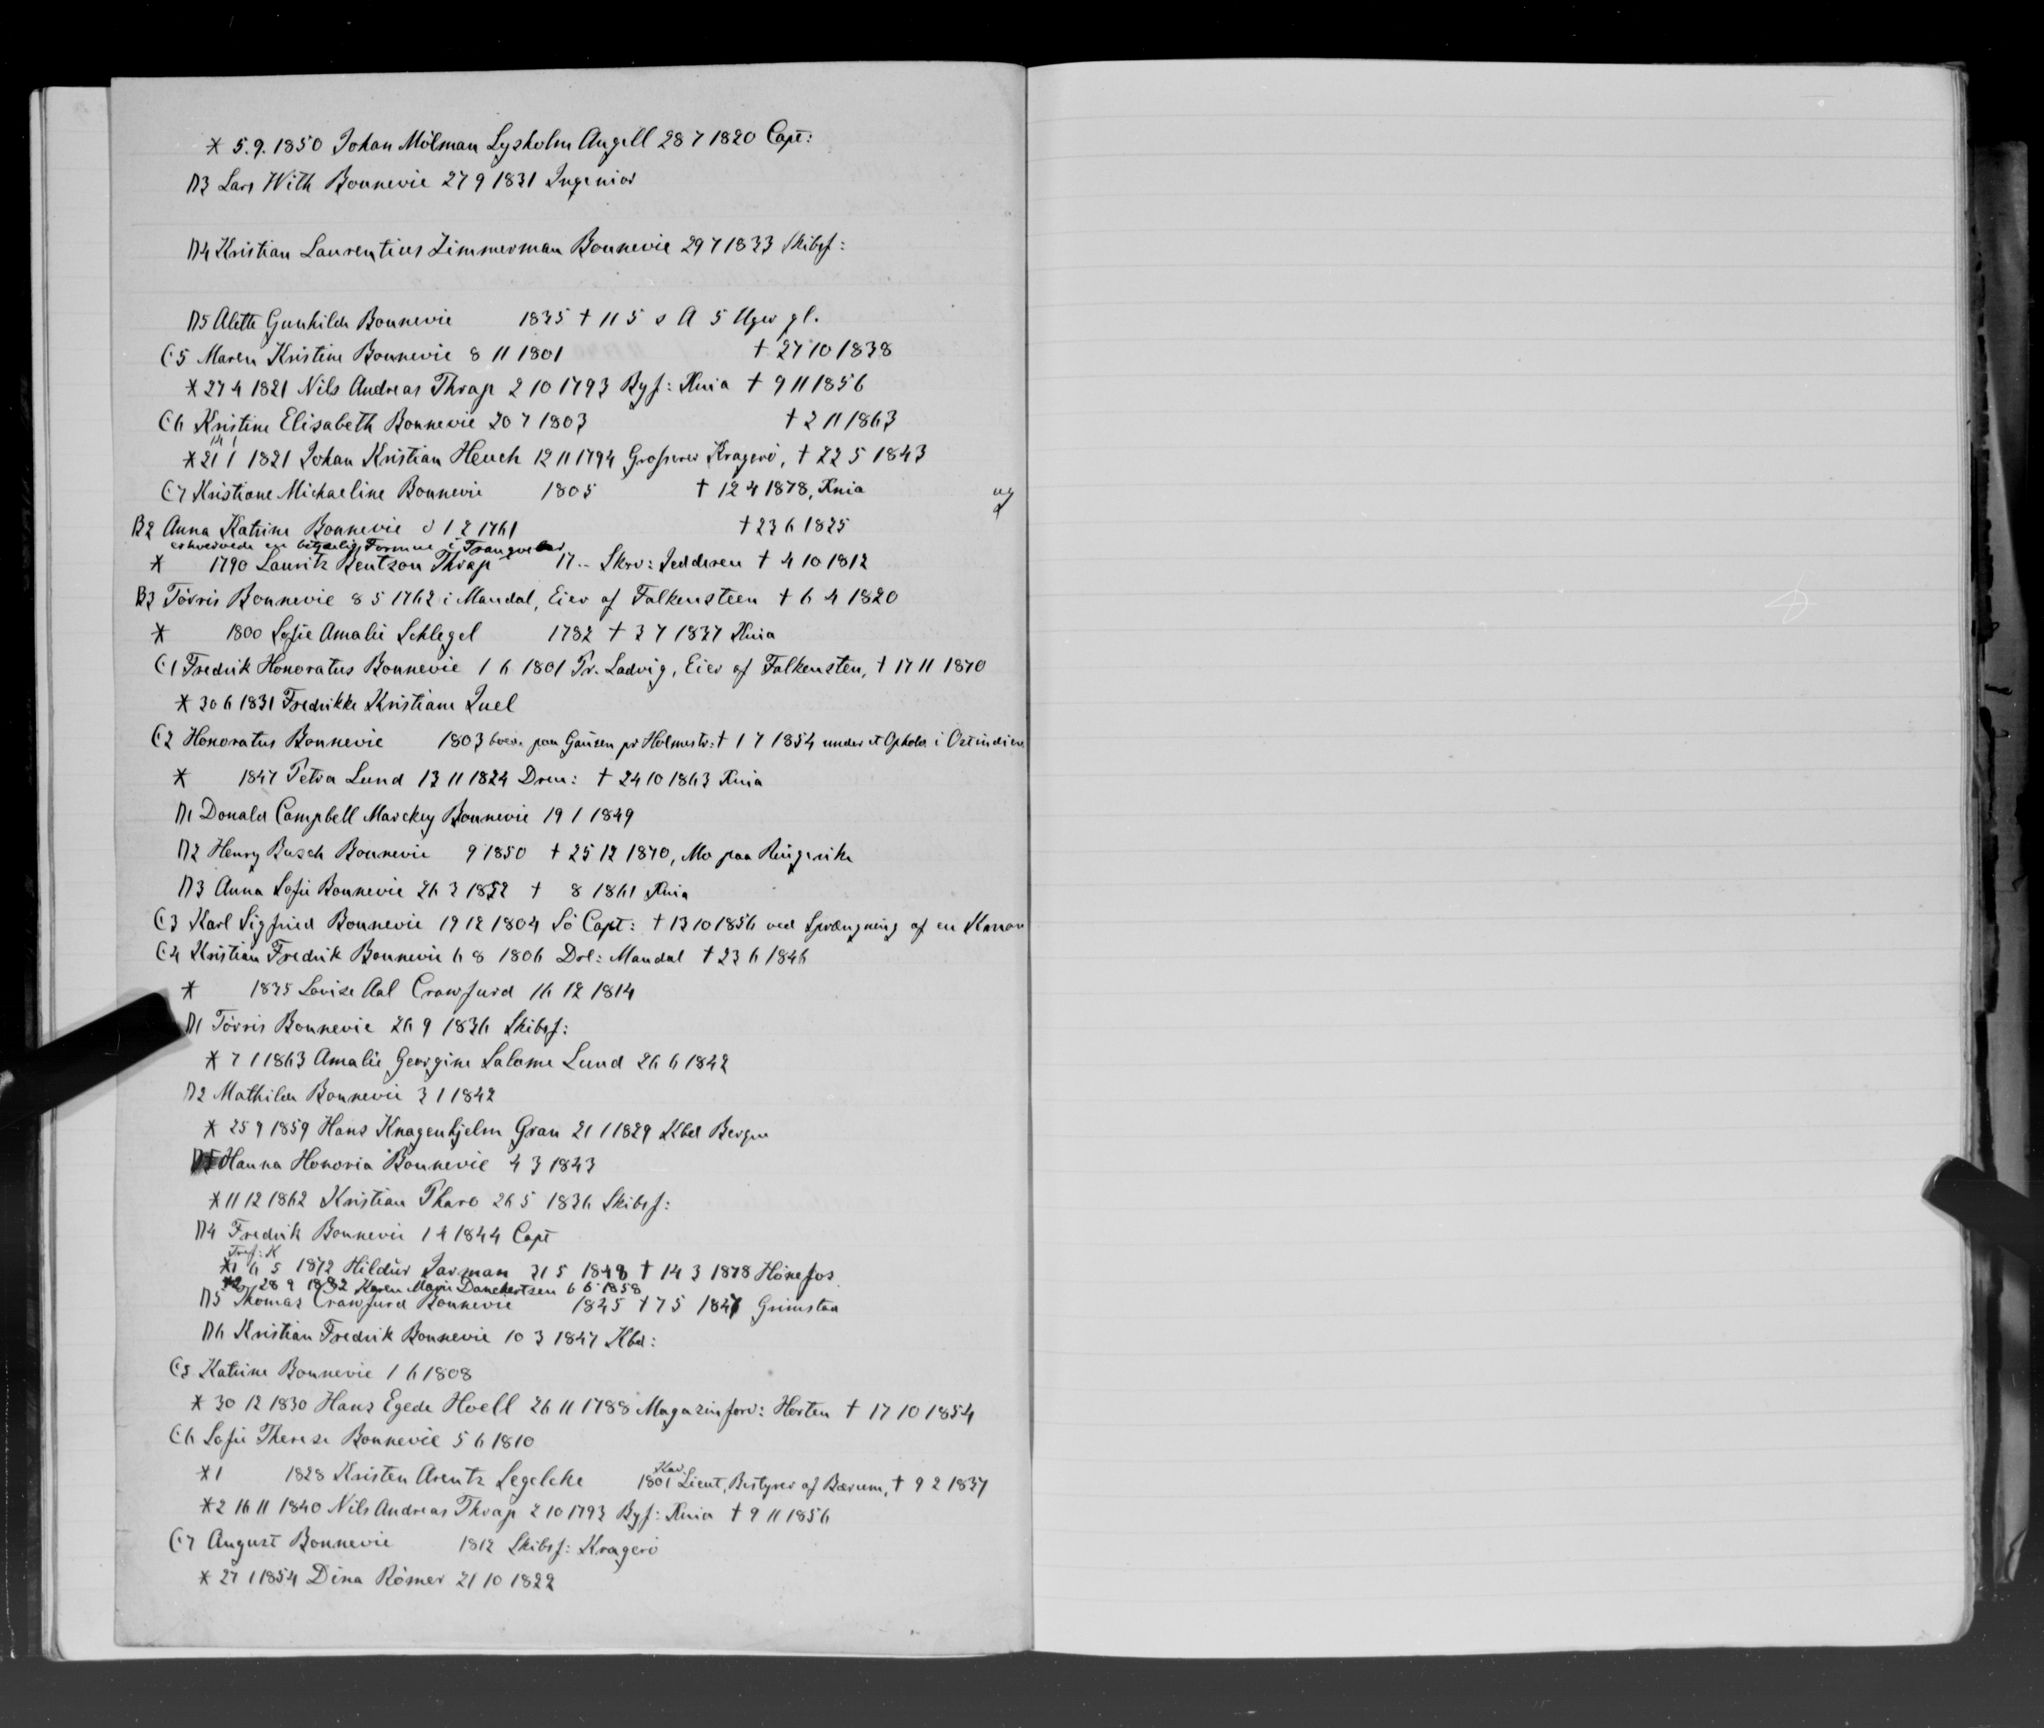 * 5.9.1850 Johan Mölman Lysholm Angell 28 7 1820 Capt:
D3 Lars With Bonnevie 27 9 1831 Ingeniør
D4 Kristian Laurentius Zimmerman Bonnevie 29 7 1833 Skibsf:
D5 Alette Gunhilda Bonnevie 1835 † 11 5 s A 5 Uger gl.
C5 Maren Kristine Bonnevie 8 11 1801 † 27 10 1838
* 27 4 1821 Nils Andreas Thrap 2 10 1793 Byf: Knia † 9 11 1856
C6 Kristine Elisabeth Bonnevie 20 7 1803 † 2 11 1863
* 21 1 1821 Johan Kristian Heuch 12 11 1794 Grosserer Kragerö, † 22 5 1843
C7 Kristiane Michaeline Bonnevie 1805 † 12 4 1878, Knia
ug
B2 Anna Katrine Bonnevie d 1 2 1761 † 23 6 1825
erhvervede en betydelig Formue i Tranquebar
* 1790 Lauritz Bentzon Thrap 17-- Skrv: Jedderen † 4 10 1812
B3 Törris Bonnevie 8 5 1762 i Mandal, Eier af Falkensteen † 6 4 1820
* 1800 Sofie Amalie Schlegel 1782 † 3 7 1837 Knia
C1 Fredrik Honoratus Bonnevie 1 6 1801 Pr. Ladvig, Eier af Falkensten, † 17 11 1870
* 30 6 1831 Fredrikke Kristiane Juel
C2 Honoratus Bonnevie 1803 boede paa Gausen pr Holmestr: † 1 7 1854 under et Ophold i Ostindien
* 1847 Petra Lund 13 11 1824 Drm: † 24 10 1863 Knia
D1 Donald Campbell Marckey Bonnevie 19 1 1849
D2 Henry Busch Bonnevie 9 1850 † 25 12 1870, Mo paa Ringerike
D3 Anna Sofie Bonnevie 26 3 1852 † 8 1861 Knia
C3 Karl Sigfried Bonnevie 19 12 1804 Sö Capt: † 13 10 1856 ved Sprængning af en Kanon
C4 Kristian Fredrik Bonnevie 6 8 1806 Drl: Mandal † 23 6 1846
* 1835 Lovise Aal Crawfurd 16 12 1814
D1 Törris Bonnevie 26 9 1836 Skibsf:
* 7 1 1863 Amalie Georgine Salome Lund 26 6 1842
D2 Mathilda Bonnevie 3 1 1842
* 25 9 1859 Hans Knagenhjelm Gran 21 1 1829 Kbd Bergen
Hanna Honoria Bonnevie 4 3 1843
* 11 12 1862 Kristian Tharo 26 5 1836 Skibsf:
D4 Fredrik Bonnevie 1 4 1844 Capt
Tref: K
*1 6 5 1872 Hildur Jarman 31 5 1848 † 14 3 1878 Hönefos
*2 28 9 1882 Karen Marie Danchertsen 6 6 1858
D5 Thomas Crawfurd Bonnevie 1845 † 7 5 1846 Grimstad
D6 Kristian Fredrik Bonnevie 10 3 1847 Kbd:
C5 Katrine Bonnevie 1 6 1808
* 30 12 1830 Hans Egede Hoell 26 11 1788 Magasinforv: Horten † 17 10 1854
C6 Sofie Therese Bonnevie 5 6 1810
*1 1828 Kristen Arentz Segelcke 1801 Kav. Lieut, Bestyrer af Bærum, † 9 2 1837
*2 16 11 1840 Nils Andreas Thrap 2 10 1793 Byf: Knia † 9 11 1856
C7 August Bonnevie 1812 Skibsf: Kragerö
* 27 1 1854 Dina Römer 21 10 1822